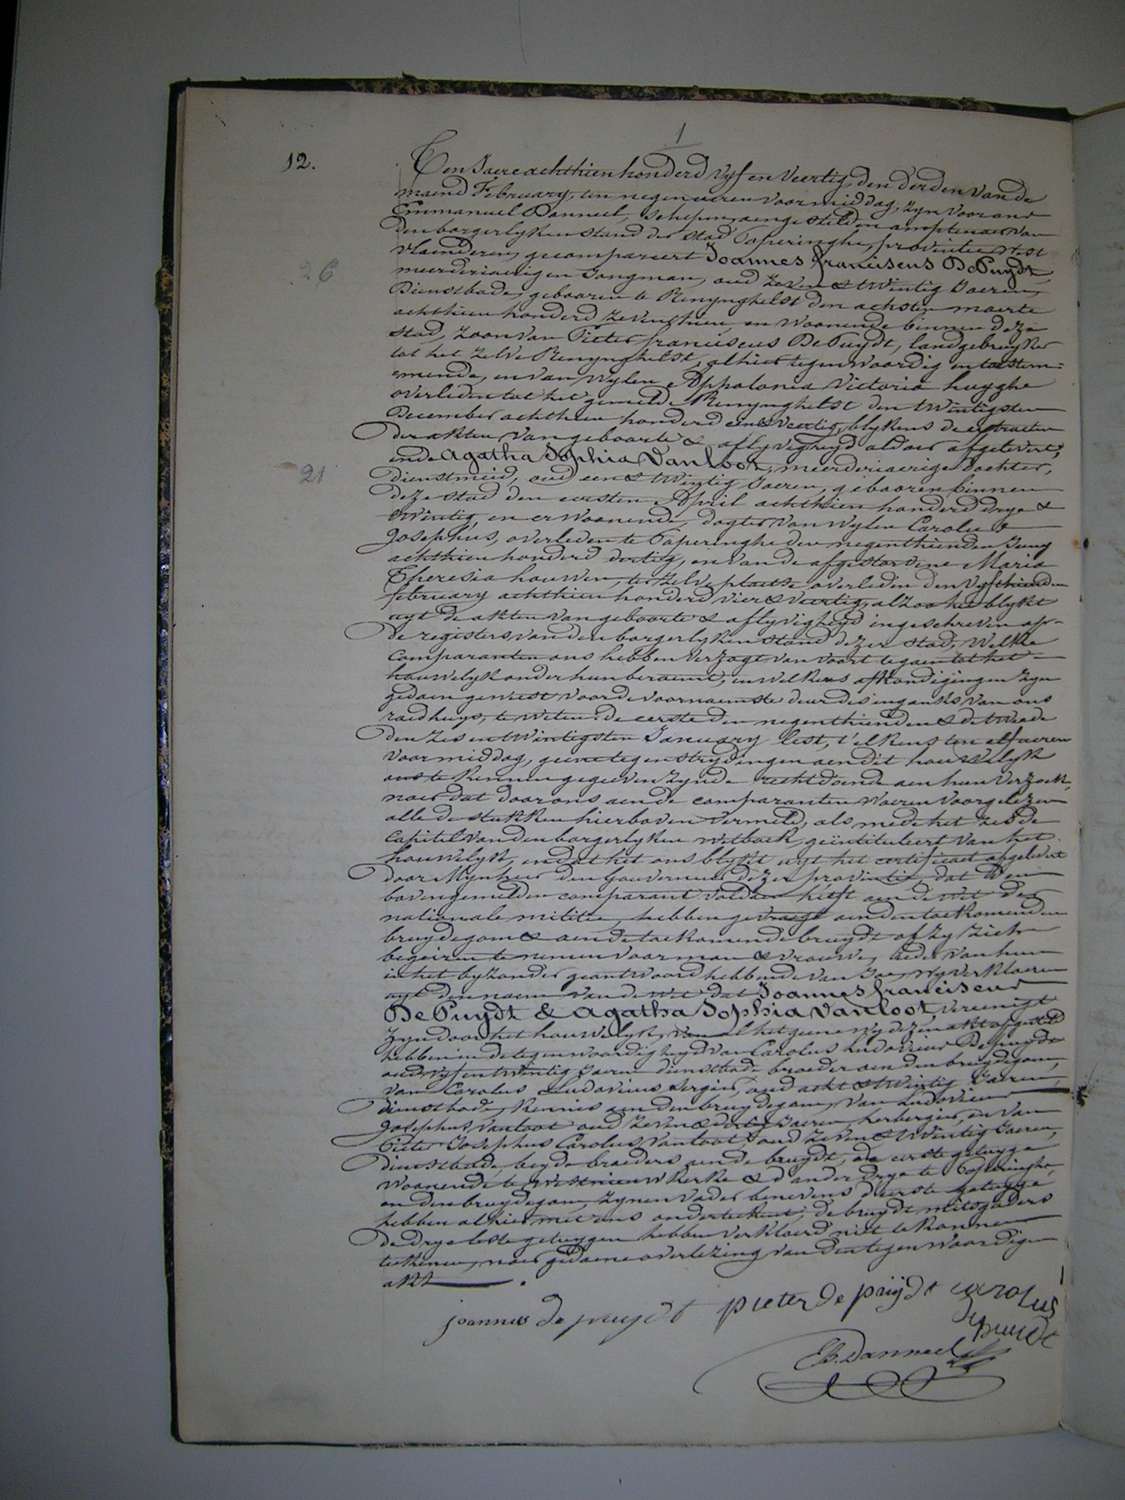 1
12.
Ten Jaere achthien honderd vyf en veertig, den derden van de
maend February, ten negen ueren voormiddag, zyn voor ons
Emmanuel Danneel, schepen aengestelden amptenaer van
den borgerlyken stand der stad Poperinghe, provintie West
vlaenderen, gecompareert Joannes franciscus DePuydt,
26
meerderjaerigen Jongman, oud zeven & twintig Jaeren,
Dienstbode, gebooren te Renynghelst den achsten maerte
achthien honderd zeventhien en woonende binnen deze
stad, zoon van Pieter franciscus DePuydt, landgebruyker
tot het zelve Renynghelst, alhier tegenwoordig en toestem-
mende, en van wylen Appolonia Victoria huyghe
overleden tot het gemelde Renynghelst den twintigsten
December achthien honderd een & veertig, blykens de extracten
der akten van geboorte & aflyvigheyd aldaer afgelevert;
ende Agatha Sophia Vanloot, meerderjaerige dochter,
21
dienstmeid, oud een & twintig Jaeren, gebooren binnen
deze stad den eersten April achthien honderd drye &
twintig, en er woonende, dogter van wylen Carolus
Josephus, overleden te Poperinghe den negenthienden Juny
achthien honderd dertig, en van de afgestorvene Maria
Theresia houwen, ter zelve plaetse overleden den vyfthienden
february achthien honderd vier & veertig, alzoo het blykt
uyt de akten van geboorte & aflyvigheyd ingeschreven op
de registers van den borgerlyken stand dezer stad, Welke
comparanten ons hebben verzogt van voort te gaen tot het
houwelyk onder hun beraemt, en welkers afkondigingen zyn
gedaen geweest voor de voornaemste deur des ingangs van ons
raedhuys, te weten: de eerste den negenthienden & de tweede
den zes en twintigsten January lest, t'elkens ten elf ueren
voormiddag, geene tegenstrydingen aen dit houwelyk
ons te kennen gegeven zynde regtdoende aen hun verzoek,
naer dat door ons aen de comparanten waeren voorgelezen
alle de stukken hierboven vermeld, als mede het zesde
capitel van den borgerlyken wetboek, geïntituleert van het
houwelyk, en dat het ons blykt uyt het certificaet afgelevert
door Mynheer den Gouverneur dezer provintie, dat den
bovengemelden comparant voldaen heeft aen de wet der
nationale militie, hebben gevraegt aen den toekomenden
bruydegom & aen de toekomende bruydt of zy zich
begeiren te nemen voor man & vrouwe, ieder van hun
in het byzonder geantwoord hebbende van Joa, wy verklaeren
uyt den naem van de wet dat Joannes franciscus
De Puydt & Agatha Sophia Vanloot, vereenigt
zyn door het houwelyk, van al het geene wy dezen akt opgesteld
hebben in de tegenwoordigheyd van Carolus Ludovicus Depuydt
oud vyf en twintig Jaeren dienstbode broeder aen den bruydegom,
van Carolus Ludovicus Ergier, oud acht & twintig Jaeren,
dienstbode, kennis aen den bruydegom, van Ludovicus
Josephus, Vanloot oud zeven & dertig Jaeren, herbergier, en van
Pieter Josephus Carolus Vanloot, oud zeven & twintig Jaeren,
dienstbode, beyde broeders aen de bruydt, de eerste getuyge
woonende te Westnieuwkerke & d'ander drye te Poperinghe,
en den bruydegom, zynen vader benevens d'eerste getuyge
hebben alhier met ons onderteekent, de bruydt mitsgaders
de drye leste getuygen hebben verklaerd niet te konnen
teekenen, naer gedaene overlezing van den tegenwoordigen
akt.
joannes de puydt pieter de puijdt carolus
depuydt
E. Danneel